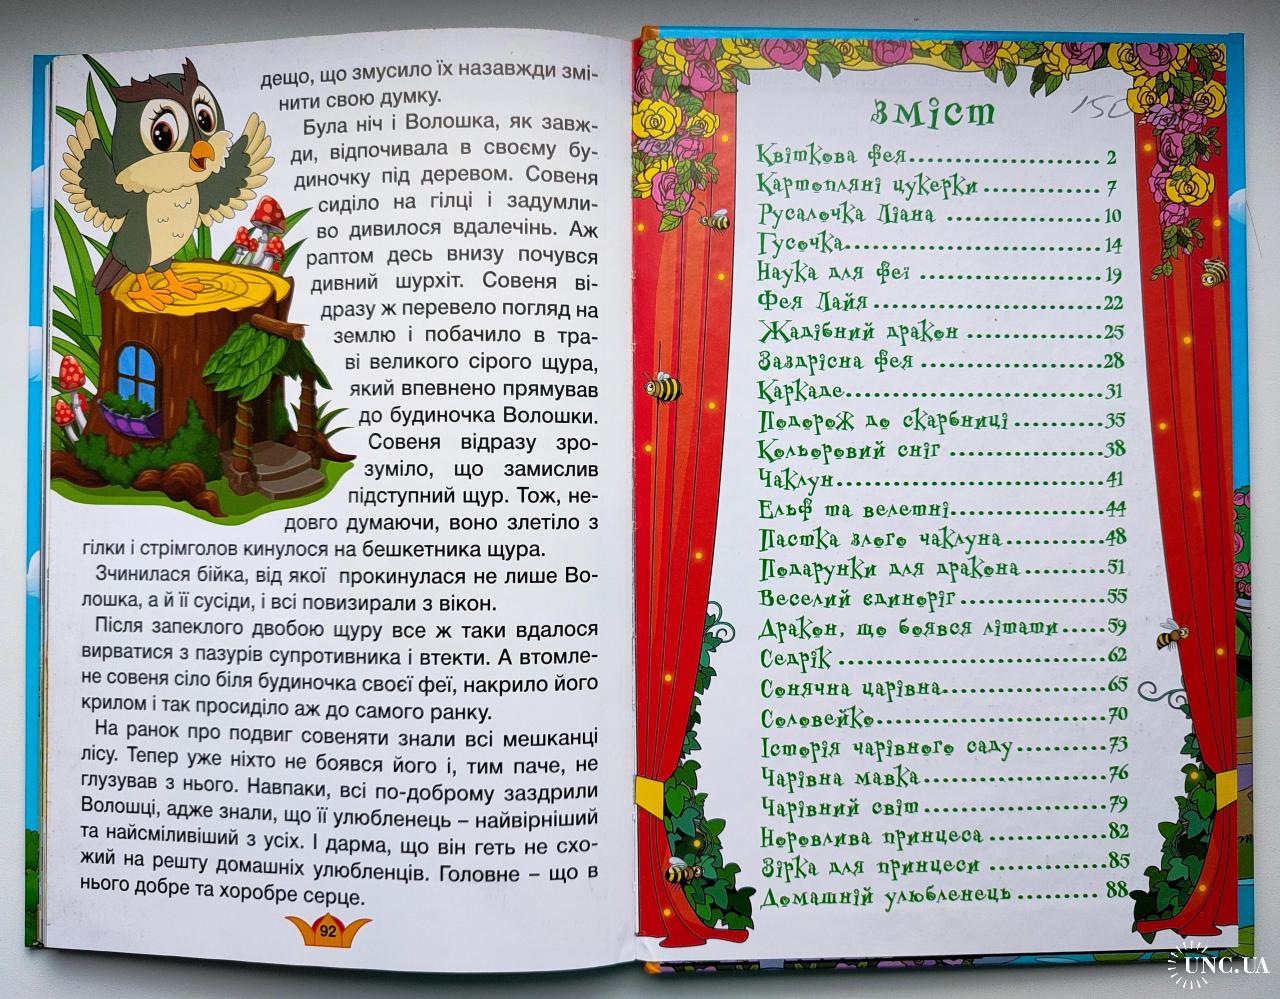 дещо, що змусило їх назавжди змі-
нити свою думку.
Була ніч і Волошка, як завж-
ди, відпочивала в своєму бу-
диночку під деревом. Совеня
сиділо на гілці і задумли-
во дивилося вдалечінь. Аж
раптом десь внизу почувся
дивний шурхіт. Совеня ві-
дразу ж перевело погляд на
землю і побачило в тра-
ві великого сірого щура,
який впевнено прямував
до будиночка Волошки.
Совеня відразу зро-
зуміло, що замислив
підступний щур. Тож, не-
довго думаючи, воно злетіло з
гілки і стрімголов кинулося на бешкетника щура.
Зчинилася бійка, від якої прокинулася не лише Во-
лошка, а й її сусіди, і всі повизирали з вікон.
Після запеклого двобою щуру все ж таки вдалося
вирватися з пазурів супротивника і втекти. А втомле-
не совеня сіло біля будиночка своєї феї, накрило його
крилом і так просиділо аж до самого ранку.
На ранок про подвиг совеняти знали всі мешканці
лісу. Тепер уже ніхто не боявся його і, тим паче, не
глузував з нього. Навпаки, всі по-доброму заздрили
Волошці, адже знали, що її улюбленець – найвірніший
та найсміливіший з усіх. І дарма, що він геть не схо-
жий на решту домашніх улюбленців. Головне – що в
нього добре та хоробре серце.
92
Зміст
150
Квіткова фея.............................. 2
Картопляні цукерки .................. 7
Русалочка Ліана ........................ 10
Гусочка........................................14
Наука для феї ............................ 19
Фея Лайя .................................... 22
Жадібний дракон ...................... 25
Заздрісна фея ............................ 28
Каркаде........................................31
Подорож до скарбниці ..............35
Кольоровий сніг ........................38
Чаклун..........................................41
Ельф та велетні..........................44
Пастка злого чаклуна ................48
Подарунки для дракона ............51
Веселий єдиноріг ......................55
Дракон, що боявся літати .....59
Седрік ..........................................62
Сонячна царівна..........................65
Соловейко....................................70
Історія чарівного саду ..............73
Чарівна мавка ............................76
Чарівний світ ..............................79
Норовлива принцеса ..................82
Зірка для принцеси ....................85
Домашній улюбленець .............. 88
UNC.UA